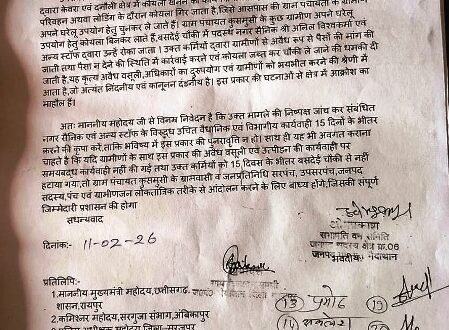 द्वारा केवरा एवं दनौली क्षेत्र में कोयला खनन का
परिवहन अथवा लोडिंग के दौरान कोयला गिर जाता है, जिसे आसपास की ग्राम पंचायतों के ग्रामीण
अपने घरेलू उपयोग हेतु चुनकर ले जाते हैं। ग्राम पंचायत कुसमुसी के कुछ ग्रामीण अपने घरेलू
उपयोग हेतु कोयला बिनकर लाते हैं, बसदेई चौकी में पदस्थ नगर सैनिक श्री अनिल विश्वकर्मा एवं
अन्य स्टॉफ द्वारा उन्हे रोका जाता । उक्त कर्मियों द्वारा ग्रामीणों से अवैध रूप से पैसों की मांग की
जाती तथा पैसा न देने की स्थिति में कार्रवाई करने एवं कोयला जब्त कर चौकी ले जाने की धमकी दी
जाती है, यह कृत्य अवैध वसूली, अधिकारों का दुरूपयोग एवं ग्रामीणों को भयभीत करने की श्रेणी में
आता है, जो अत्यंत निंदनीय एवं कानूनन दंडनीय है। इस प्रकार की घटनाओं से क्षेत्र में आक्रोश का
माहौल हैं।
अतः माननीय महोदय जी से विनम्र निवेदन है कि उक्त मामले की निष्पक्ष जांच कर संबंधित
नगर सैनिक एवं अन्य स्टॉफ के विरूद्ध उचित वैधानिक एवं विभागीय कार्यवाही 15 दिनों के भीतर
करने की कृपा करें, ताकि भविष्य में इस प्रकार की पुनरावृत्ति न हो। साथ ही यह भी अवगत कराना
चाहते है कि यदि ग्रामीणों के साथ इस प्रकार की अवैध वसूली एवं उत्पीड़न की कार्यवाही पर
समयबद्ध कार्यवाही नही की गई तथा उक्त कर्मियों को 15, दिवस के भीतर बसदेई चौकी से नहीं
हटाया गया, तो ग्राम पंचायत कुसमुसी के ग्रामवासी व जनप्रतिनिधि सरपंच, उपसरपंच, जनपद
सदस्य, पंच एवं ग्रामीणजन लोकतांत्रिक तरीके से आंदोलन करने के लिए बाध्य होंगे, जिसकी संपूर्ण
जिम्मेदारी प्रशासन की होगा
सधन्यवाद
सभापति वन समिति
जनपद सदस्य क्षेत्र क्र.06
दिनांकः- 11-02-26
प्रतिलिपिः-
1. माननीय मुख्यमंत्री महोदय, छत्तीसगढ़
शासन, रायपुर
2. कमिश्नर महोदय, सरगुजा संभाग, अंबिकापुर
(13) प्रमोद (19)
(14)